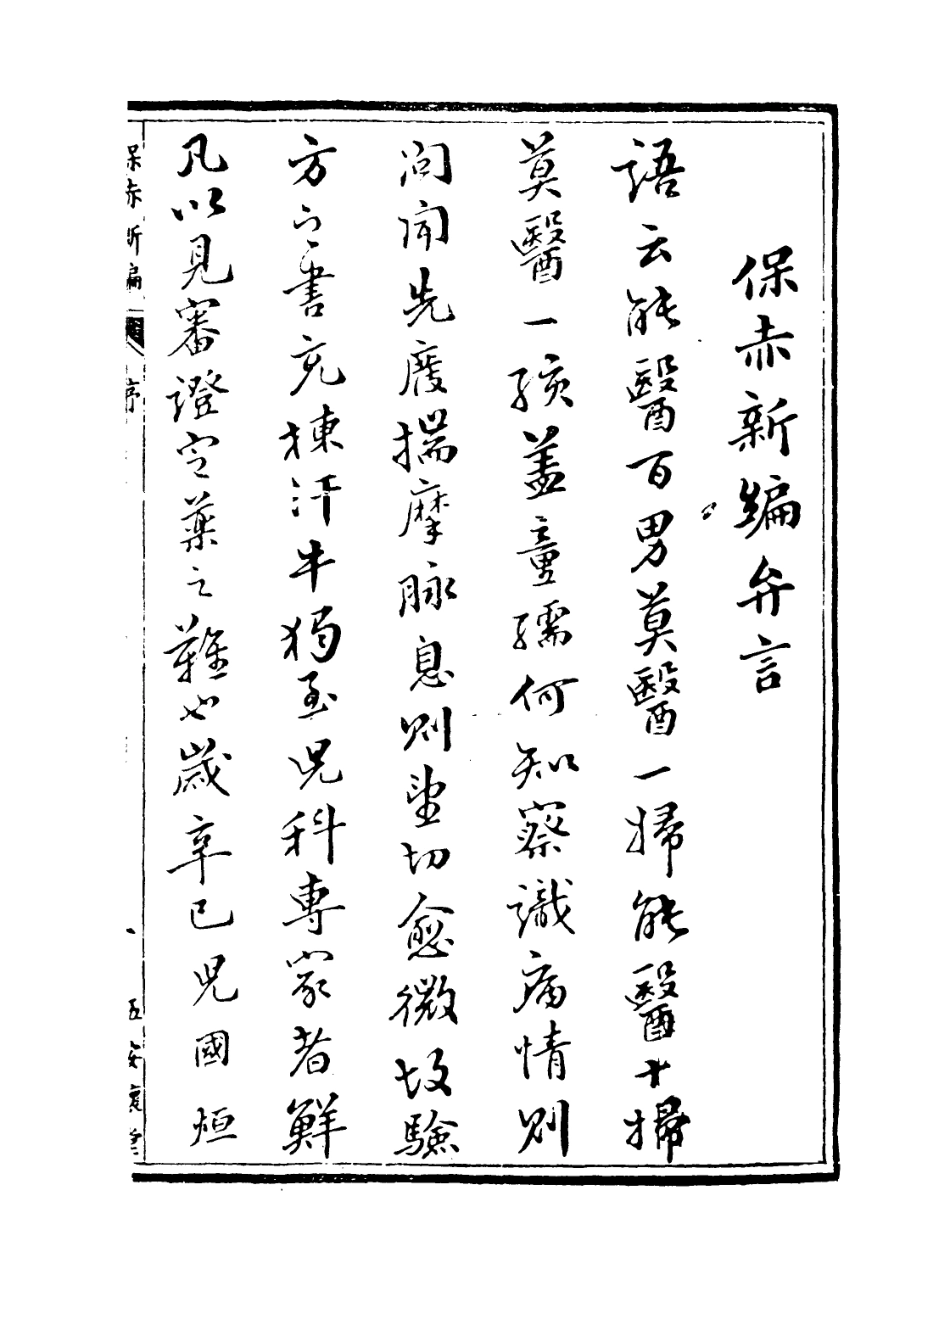 保赤新編弁言
語云能醫百男莫醫一婦能醫十婦
莫醫一孩蓋童孺何知察識病情則
問聞先廢揣摩脉息則望切愈微故驗
方之書充棟汗牛獨至兒科專家者鮮
凡以見審證定藥之難也歲辛巳兒國烜
保赤新編 序 五